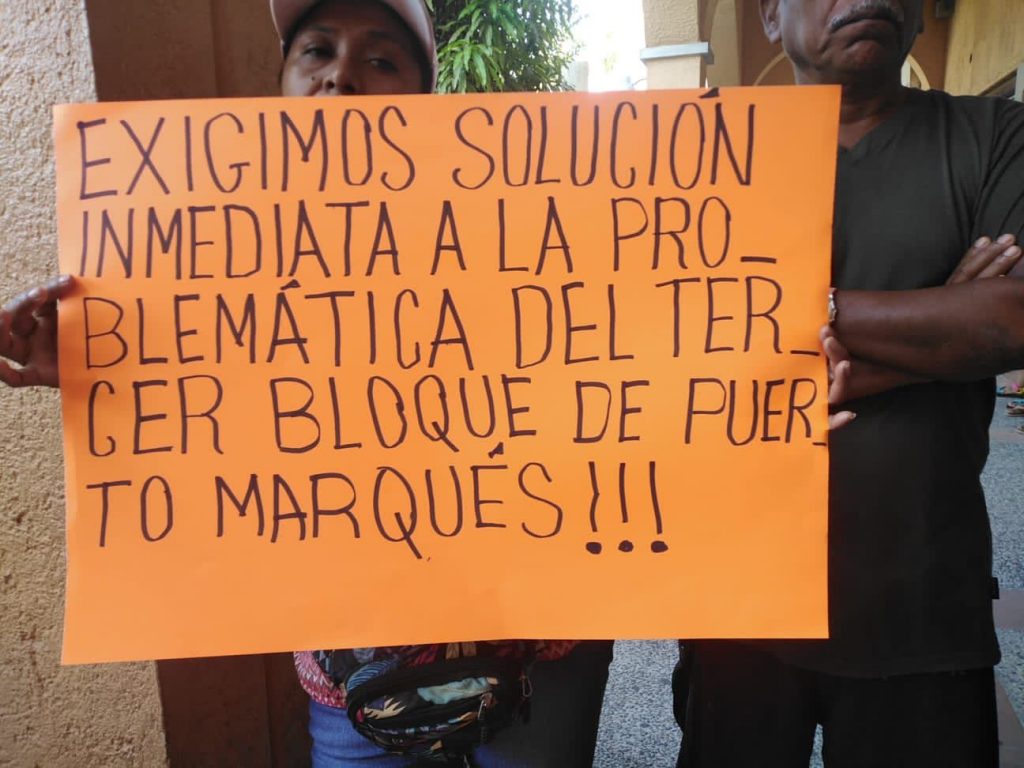 EXIGIMOS SOLUCIÓN
INMEDIATA A LA PRO_
BLEMÁTICA DEL TER_
CER BLOQUE DE PUER_
TO MARQUÉS!!!